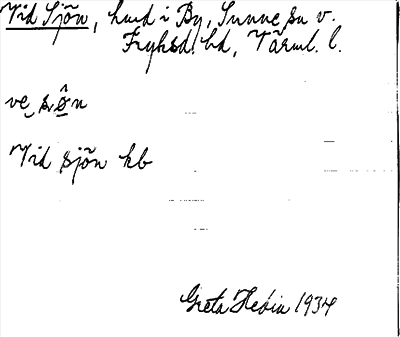 Vid Sjön, hmd i By, Sunne sn v.
Fryksd. hd, Värml. l.
ve sö̂n
Vid sjön kb
Greta Hedin 1934